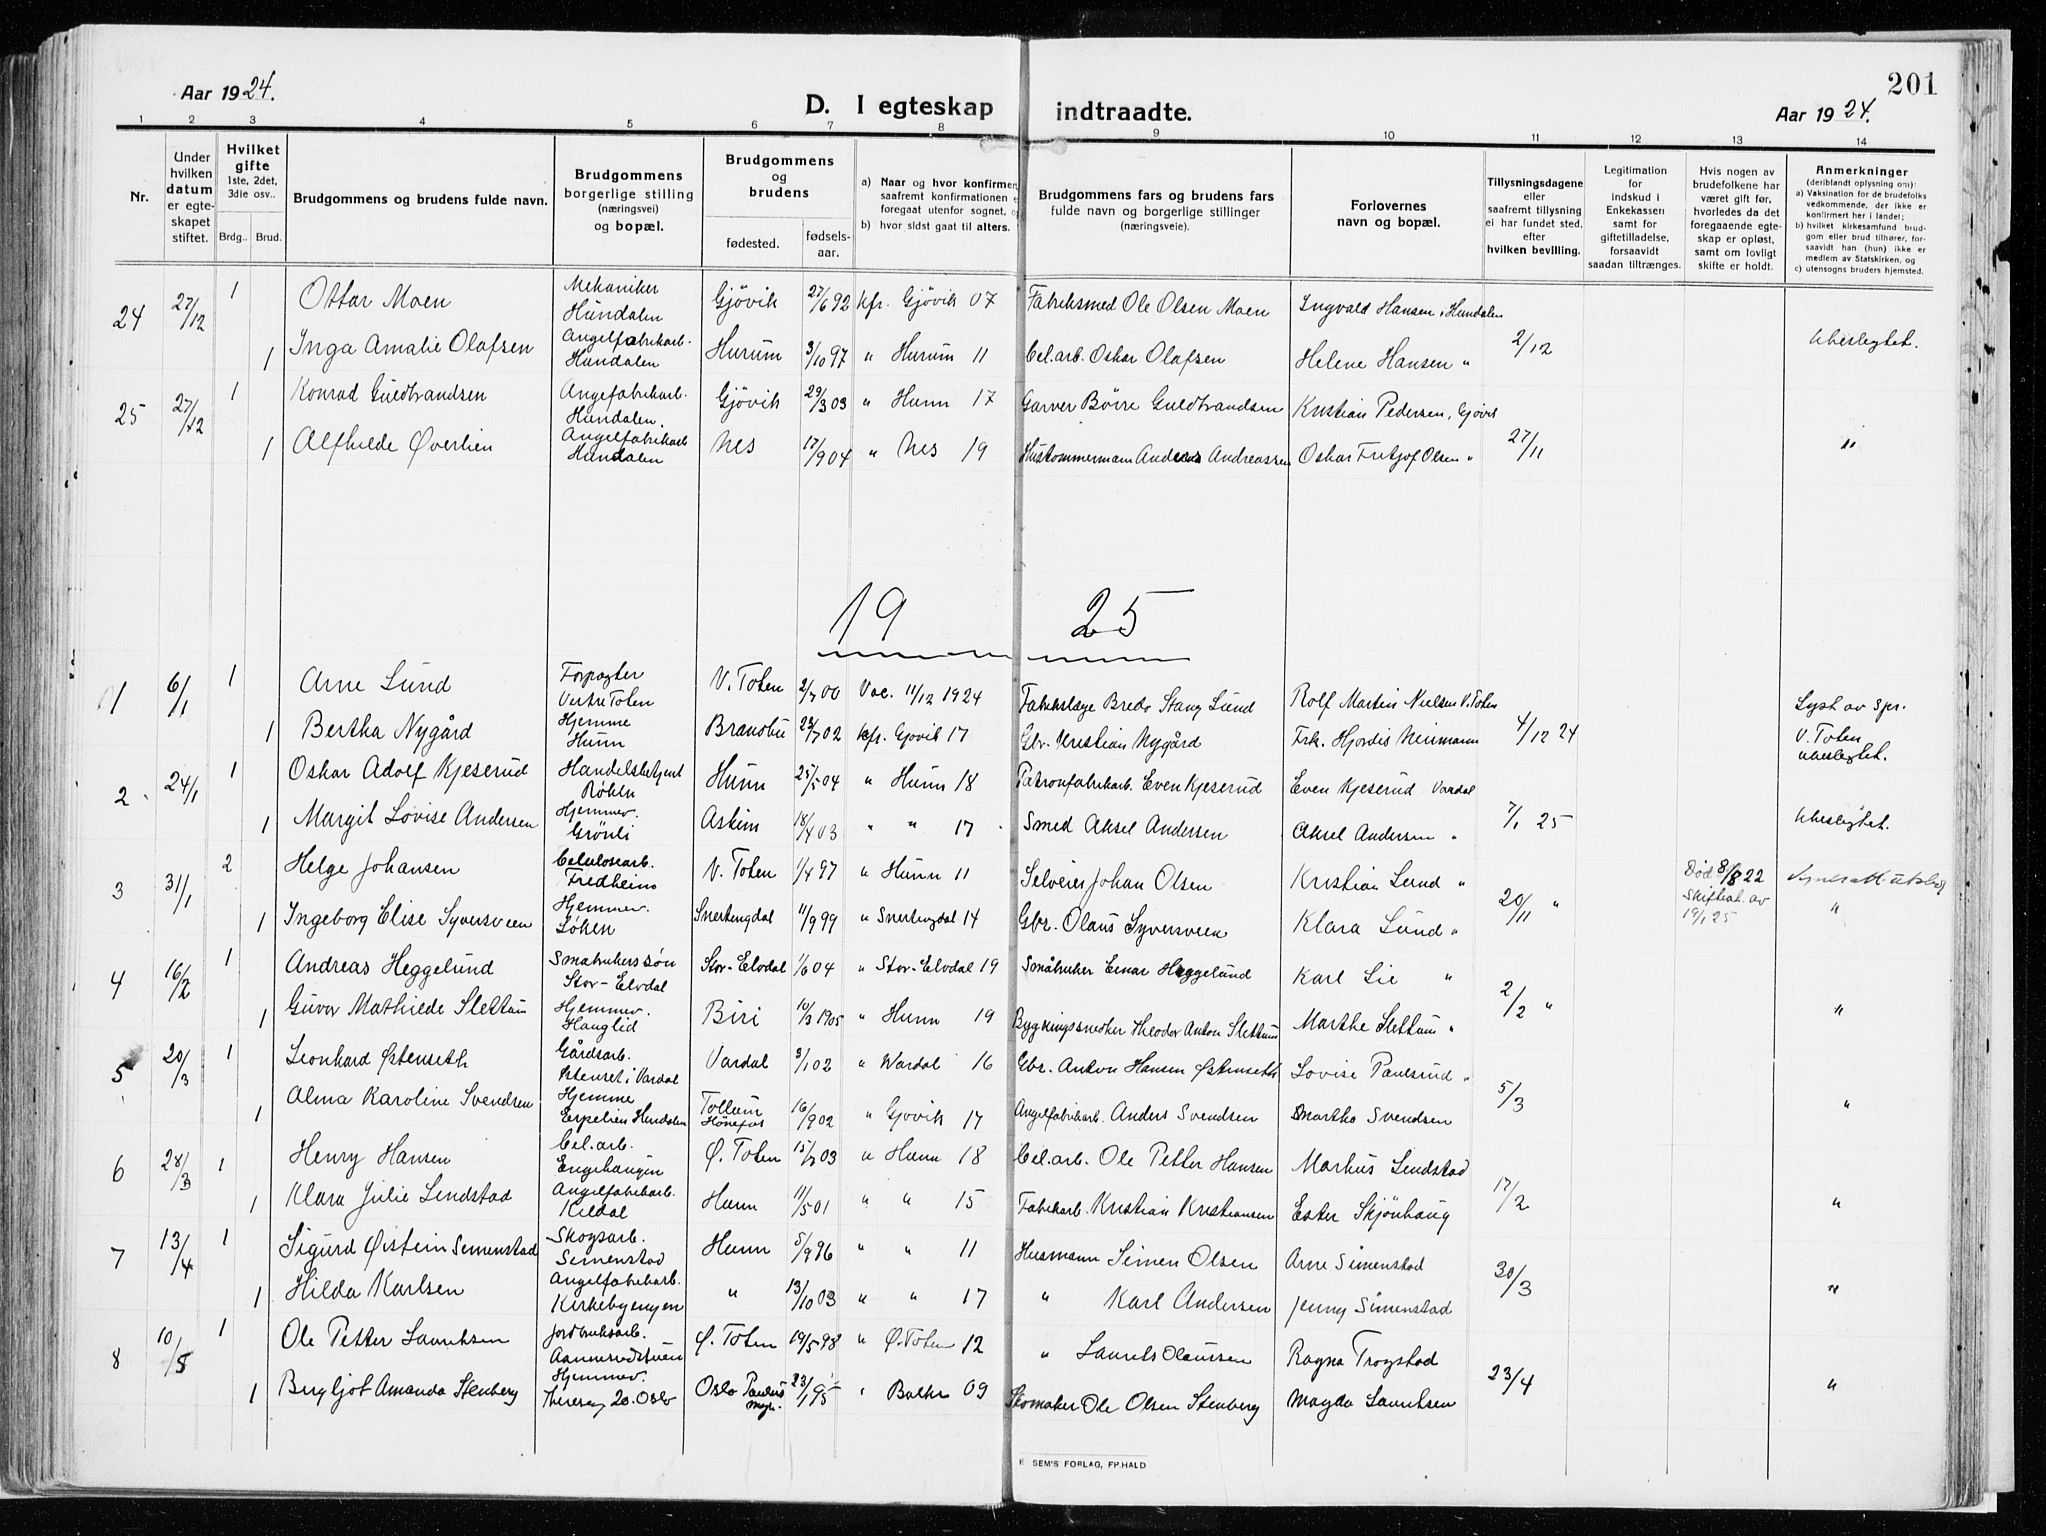 201
Aar 1924.
D. I egteskap indtraadte.
Aar 1924.
1 2 3 4 5 6 7 8 9 10 11 12 13 14
Nr.
Under hvilken datum er egteskapet stiftet.
Hvilket gifte 1ste, 2det, 3die osv..
Brdg.. Brud.
Brudgommens og brudens fulde navn.
Brudgommens borgerlige stilling (næringsvei) og bopæl.
Brudgommens og brudens
fødested. fødselsaar.
a) Naar og hvor konfirmer
saafremt konfirmationen e
foregaat utenfor sognet, o
b) hvor sidst gaat til alters.
Brudgommens fars og brudens fars fulde navn og borgerlige stillinger (næringsveie).
Forlovernes navn og bopæl.
Tillysningsdagene eller saafremt tillysning ei har fundet sted, efter hvilken bevilling.
Legitimation for indskud i Enkekassen samt for giftetilladelse, forsaavidt saadan tiltrænges.
Hvis nogen av brudefolkene har været gift før, hvorledes da det foregaaende egteskap er opløst, samt om lovligt skifte er holdt.
Anmerkninger
(deriblandt oplysning om):
a) Vaksination for de brudefolks vedkommende, der ikke er konfirmert her i landet;
b) hvilket kirkesamfund brudgom eller brud tilhører, forsaavidt han (hun) ikke er medlem av Statskirken, og
c) utensogns bruders hjemsted.
24 27/12 1 Ottar Moen Mekaniker Hundalen Gjövik 27/6 92 kfr. Gjövik 07 Fabriksmed Ole Olsen Moen Ingvald Hansen, Hundalen
1 Inga Amalie Olafsen Angelfabrikarb. Hundalen Hurum 3/10 97 " Hurum 11 Cel.arb. Oskar Olafsen Helene Hansen " 2/12 Ubeslegtet.
25 27/12 1 Konrad Guldbrandsen Angelfabrikarb. Hundalen. Gjövik 29/3 03 " Hunn 17 Garver Börre Guldbrandsen Kristian Pedersen, Gjövik
1 Alfhilde Øverlien Angelfabrikarb Hundalen Nes 17/9 04 " Nes 19 Andreas Andreassen Oskar Fritjof Olsen " 27/11 "
19 25
1 6/1 1 Arne Lund Forpagter Vestre Toten V. Toten 2/7 00 Vac. 11/12 1924 Fabrikslæge Bredo Stang Lund Rolf Martin Nielsen V. Toten
1 Bertha Nygård Hjemme Hunn Brandbu 23/7 02 kfr. Gjövik 17 Gbr. Kristian Nygård Frk. Hjordis Neumann 4/12 24 Lyst av Spr. V. Toten Ubeslegtet.
2 24/1 1 Oskar Adolf Kjeserud Handelsbetjent Röhen Hunn 25/5 04 " Hunn 18 Patronfabrikarb. Even Kjeserud Even Kjeserud Vardal
1 Margit Lovise Andersen Hjemmev. Grönli Askim 18/4 03 " " 17 Smed Aksel Andersen Aksel Andersen " 7/1 25 Ubeslegtet.
3 31/1 2 Helge Johansen Celulosearb. Fredheim V. Toten 1/4 97 " Hunn 11 Johan Olsen Kristian Lund " Död 8/8 22
1 Ingeborg Elise Syversveen Hjemmev. Löken Snertingdal 11/9 99 " Snertingdal 14 Gbr. Olaus Syversveen Klara Lund " 20/11 " Skifteat. av 19/1 25 "
4 16/2 1 Andreas Heggelund Småbrukerssön Stor-Elvdal Stor-Elvdal 1/6 04 " Stor-Elvdal 19 Småbruker Einar Heggelund Karl Lie "
1 Guvor Mathilde Slettum Hjemmev. Hauglid Biri 10/3 1905 " Hunn 19 Bygningssnedker Theodor Anton Slettum Marthe Slettum " 2/2 " "
5 20/3 1 Leonhard Østenseth Gårdsarb. Østenset i Vardal Vardal 3/1 02 " Vardal 16 Gbr. Anton Hansen Østenseth Lovise Paulsrud "
1 Alma Karoline Svendsen Hjemme Hundalen Hönefos 16/9 02 " Gjövik 17 Angelfabrikarb. Anders Svendsen Martha Svendsen 5/3 "
6 28/3 1 Henry Hansen Cel.arb. Engehaugen Ø. Toten 15/7 03 " Hunn 18 Cel.arb. Ole Petter Hansen Markus Lindstad
1 Klara Julie Lindstad Angelfabrikarb. Kildal Hunn 11/5 01 " " 15 Fabrikarb. Kristian Kristiansen Ester Skjönhaug 17/2 "
7 13/4 1 Sigurd Øistein Simenstad Skogsarb. Simenstad Hunn 5/9 96 " " 11 Husmann Simen Olsen Arne Simenstad
1 Hilda Karlsen Angelfabrikarb. Kirkebyengen " 13/10 03 " " 17 " Karl Andersen Jenny Simenstad 30/3 "
8 10/5 1 Ole Petter Lauritsen Jordbruksarb. Ø. Toten 19/5 98 " Ø. Toten 12 " Laurits Olaussen Ragna Trogstad
1 Bergljot Amanda Stenberg Hjemmev. Theresg 20. Oslo Oslo Paulus mgh. 23/1 95 " Balke 09 Skomaker Ole Olsen Stenberg Magda Lauritsen 23/4 "
E. SEM'S FORLAG, FR.HALD